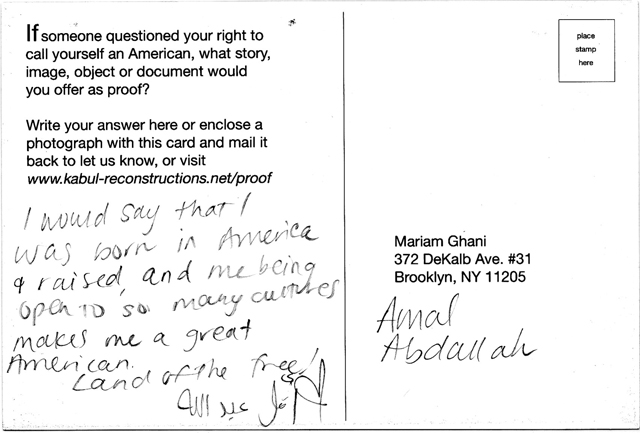 If someone questioned your right to
call yourself an American, what story,
image, object or document would
you offer as proof?
Write your answer here or enclose a
photograph with this card and mail it
back to let us know, or visit
www.kabul-reconstructions.net/proof
I would say that I
was born in America
& raised, and me being
open to so many cultures
makes me a great
American.
Land of the free!
أمل عبد الله
place
stamp
here
Mariam Ghani
372 DeKalb Ave. #31
Brooklyn, NY 11205
Amal
Abdallah